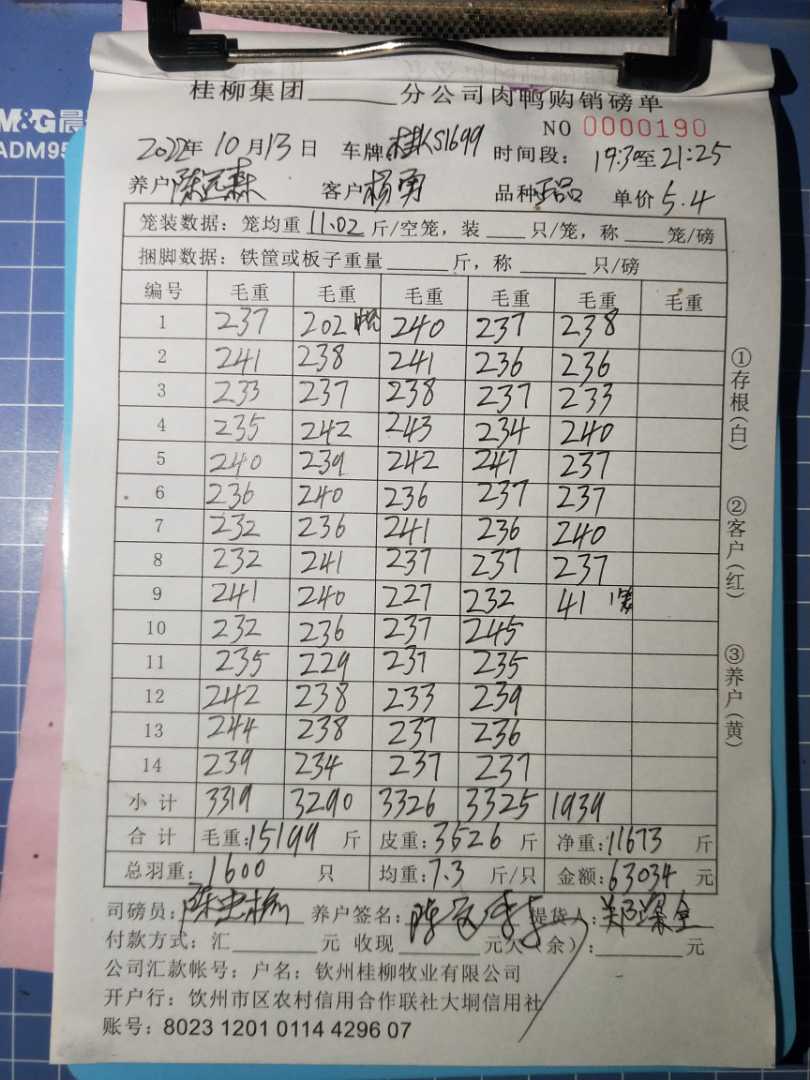 M&G晨
ADM95
桂柳集团______分公司肉鸭购销磅单
NO 0000190
2022年10月13日 车牌:桂KS1699 时间段:19:30至21:25
养户 陈远森 客户 杨勇 品种 正品 单价 5.4
笼装数据:笼均重11.02斤/空笼,装___只/笼,称___笼/磅
捆脚数据:铁筐或板子重量_____斤,称_____只/磅
编号 毛重 毛重 毛重 毛重 毛重 毛重
1 237 202 240 237 238
2 241 238 241 236 236
3 233 237 238 237 233
4 235 242 243 234 240
5 240 239 242 247 237
6 236 240 236 237 237
7 232 236 241 236 240
8 232 241 237 237 237
9 241 240 227 232 41
10 232 236 237 245
11 235 229 237 235
12 242 238 233 239
13 244 238 237 236
14 239 234 237 237
小计 3319 3290 3326 3325 1939
合计 毛重:15199斤 皮重:3526斤 净重:11673斤
总羽重:1600只 均重:7.3斤/只 金额:63034元
司磅员: 养户签名: 提货人:
付款方式:汇______元 收现______元欠(余):______元
公司汇款帐号:户名:钦州桂柳牧业有限公司
开户行:钦州市区农村信用合作联社大垌信用社
账号:8023 1201 0114 4296 07
①存根(白)
②客户(红)
③养户(黄)